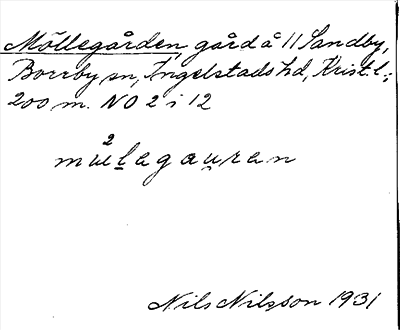 Möllegården, gård å 11 Sandby,
Borrby sn, Ingelstads hd, Krist. l.;
200 m. NO 2 i 12
2
mωl̲agau̲ran
Nils Nilsson 1931